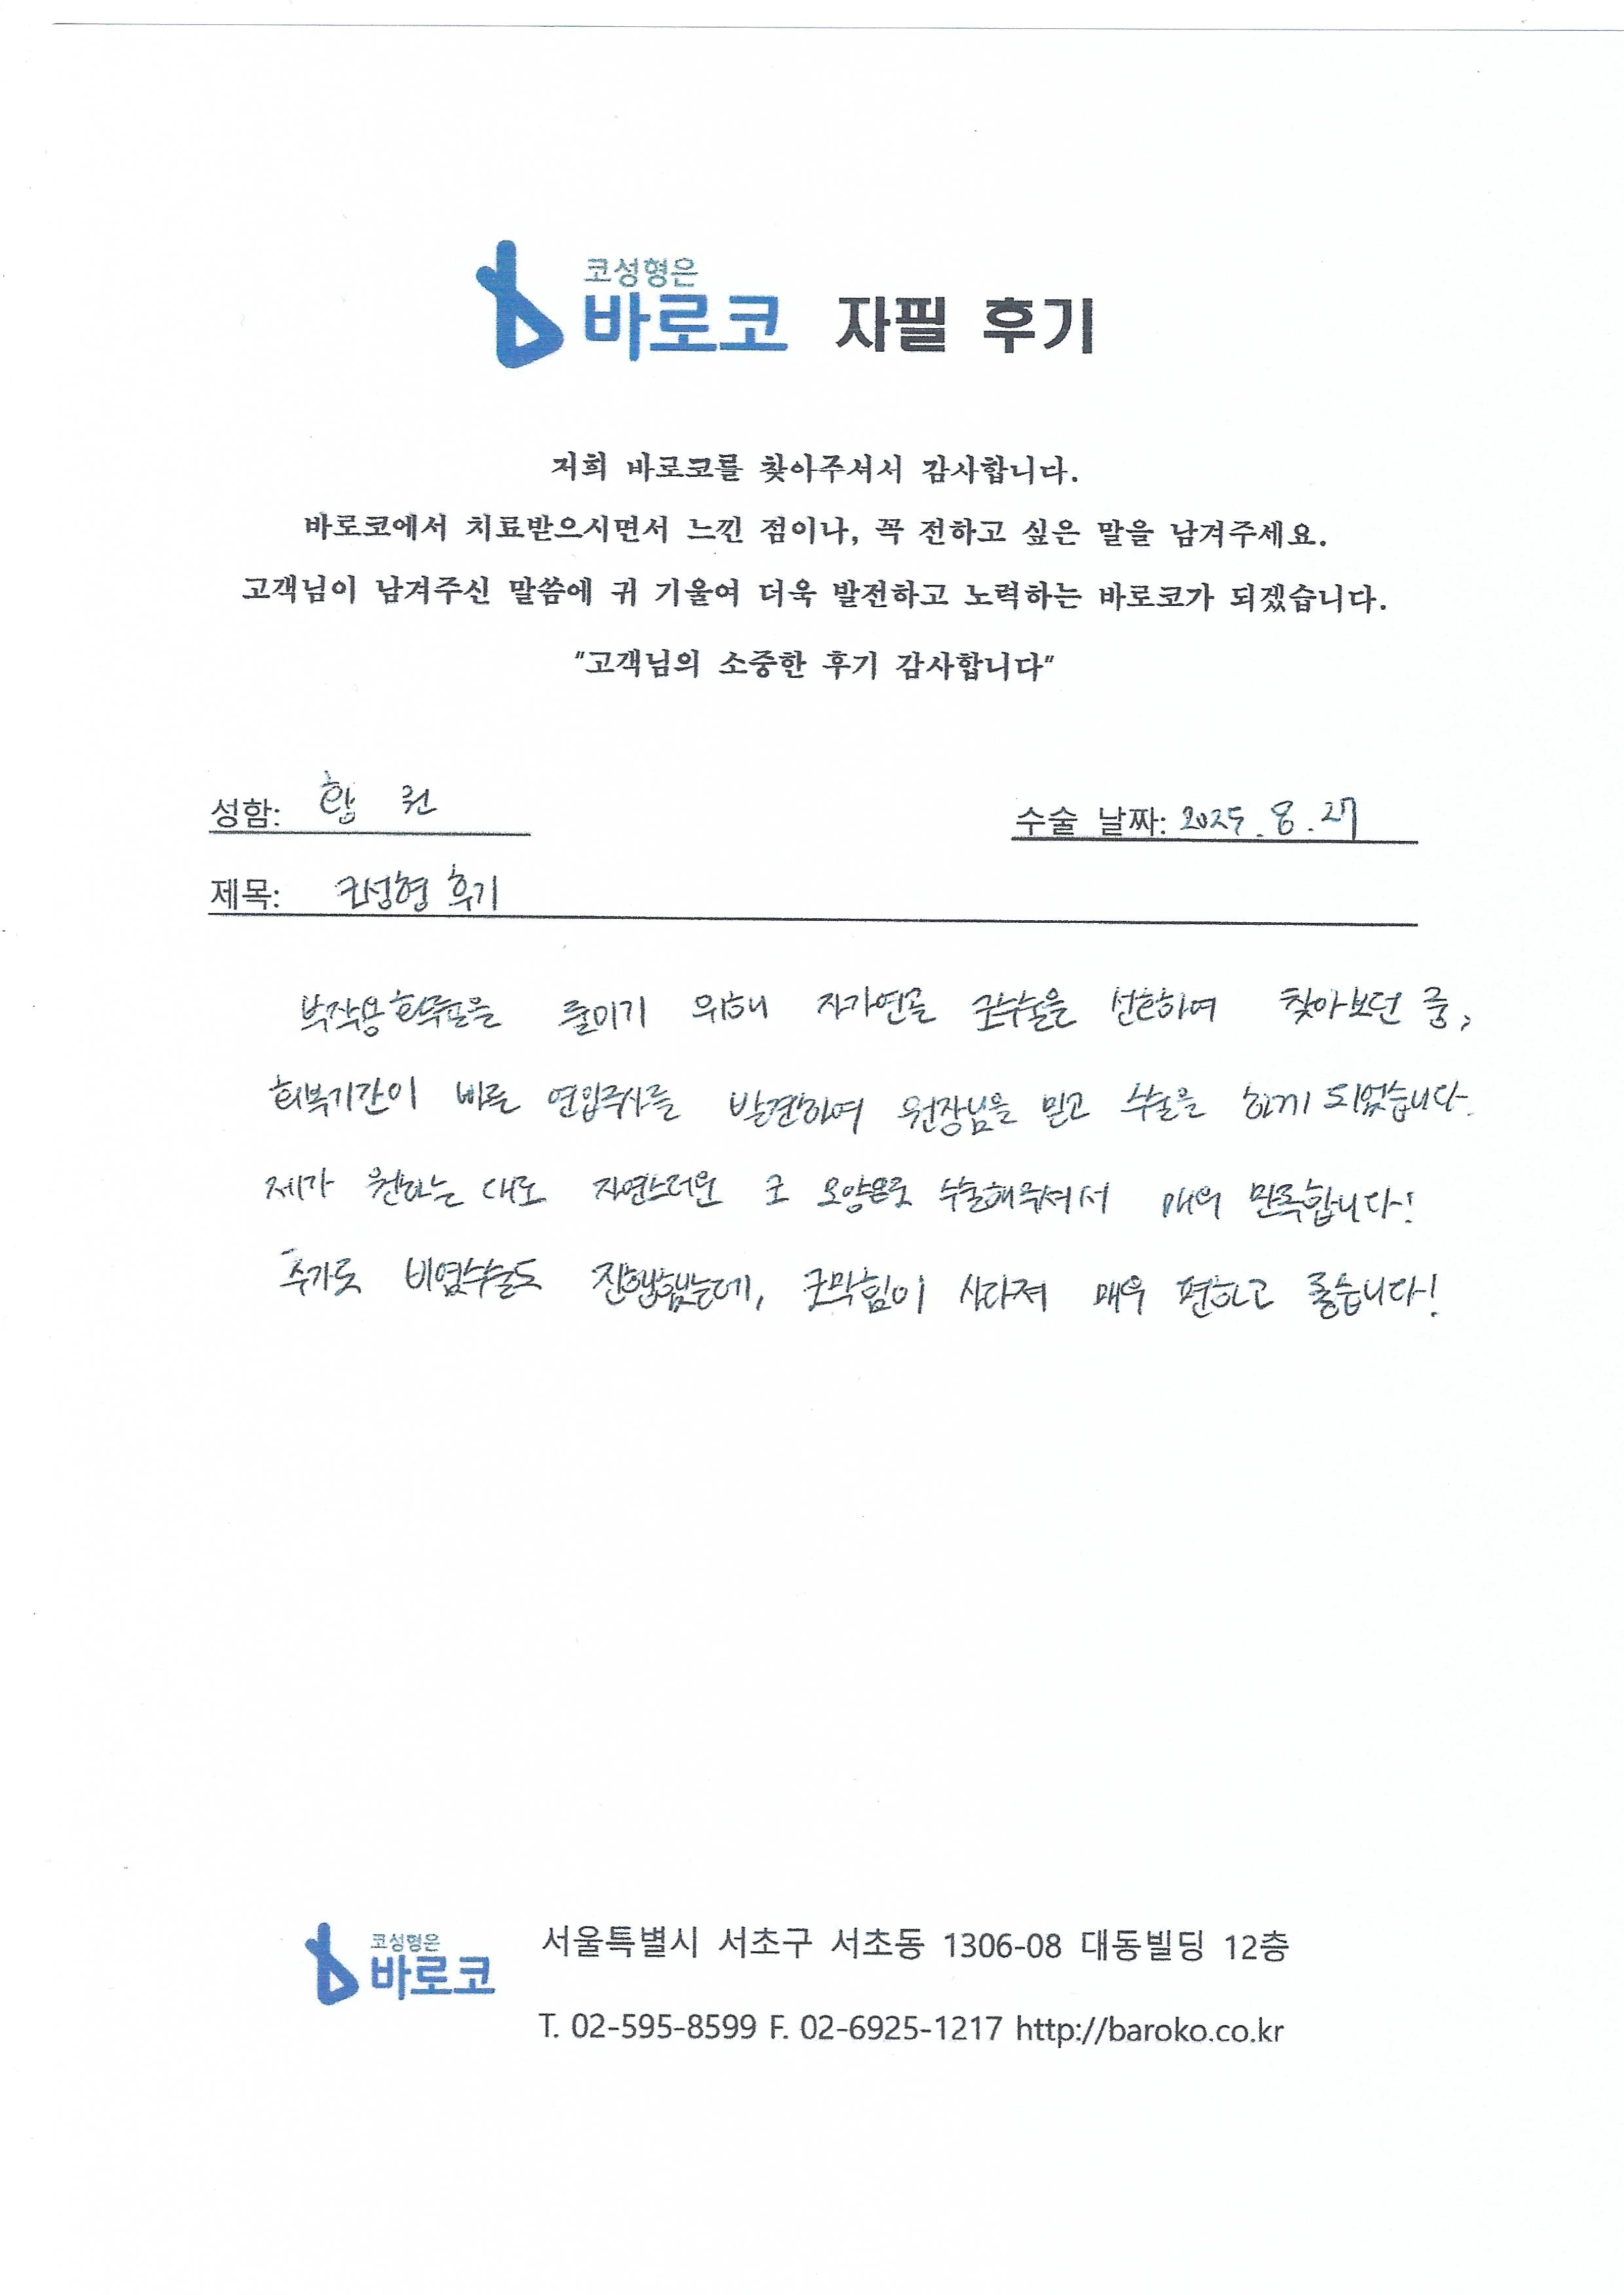 코성형은
바로코 자필 후기
저희 바로코를 찾아주셔서 감사합니다.
바로코에서 치료받으시면서 느낀 점이나, 꼭 전하고 싶은 말을 남겨주세요.
고객님이 남겨주신 말씀에 귀 기울여 더욱 발전하고 노력하는 바로코가 되겠습니다.
"고객님의 소중한 후기 감사합니다"
성함: 함 원 수술 날짜: 2025.8.27
제목: 코성형 후기
부작용 확률을 줄이기 위해 자가연골 코수술을 선호하여 찾아보던 중,
회복기간이 빠른 연입주사를 발견하여 원장님을 믿고 수술을 하게 되었습니다.
제가 원하는 대로 자연스러운 코 모양으로 수술해주셔서 매우 만족합니다!
추가로 비염수술도 진행했는데, 코막힘이 사라져 매우 편하고 좋습니다!
코성형은
바로코
서울특별시 서초구 서초동 1306-08 대동빌딩 12층
T. 02-595-8599 F. 02-6925-1217 http://baroko.co.kr